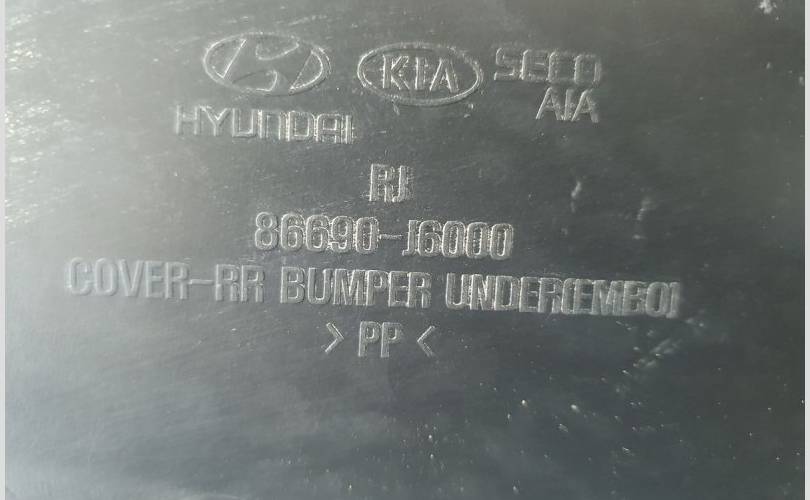 KIA SECO
HYUNDAI AIA
RJ
86690-J6000
COVER-RR BUMPER UNDER(EMBO)
>PP<